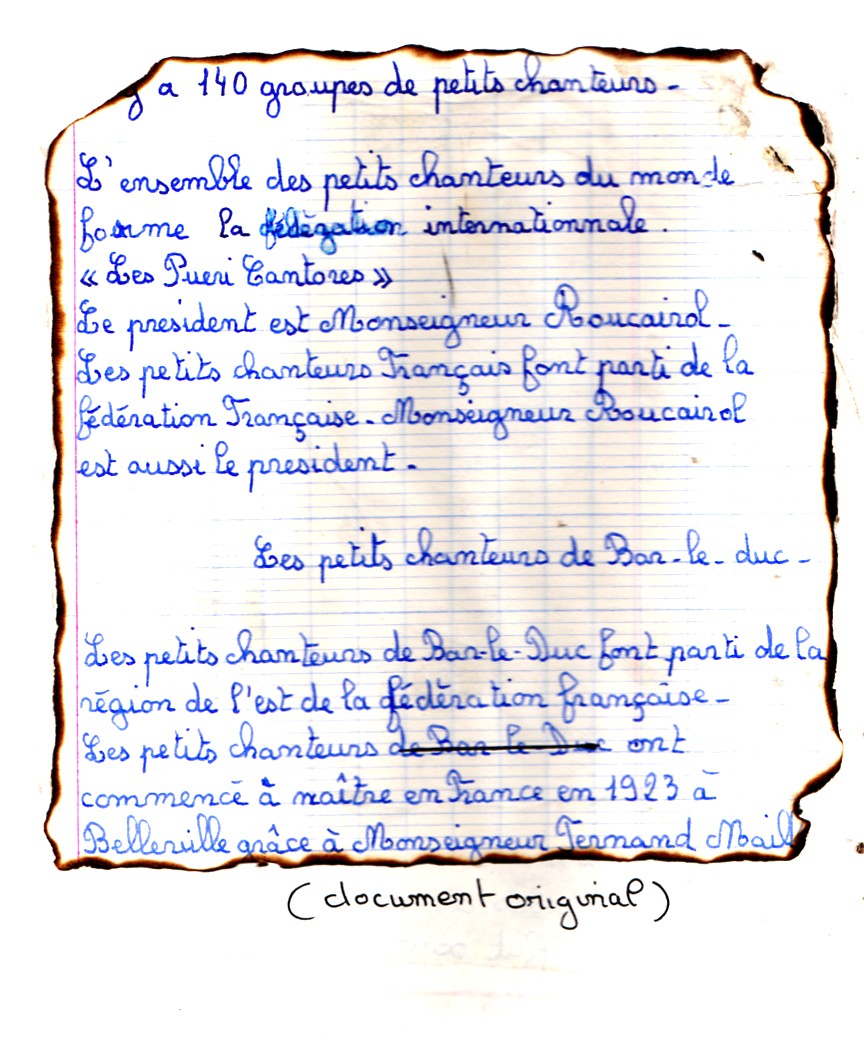 y a 140 groupes de petits chanteurs -
L'ensemble des petits chanteurs du monde
forme la fédération internationnale.
« Les Pueri Cantores »
Le president est Monseigneur Roucairol -
Les petits chanteurs Français font parti de la
fédération Française. Monseigneur Roucairol
est aussi le president.
Les petits chanteurs de Bar-le-duc -
Les petits chanteurs de Bar-le-Duc font parti de la
région de l'est de la fédération française -
Les petits chanteurs de Bar le Duc ont
commencé à naître en France en 1923 à
Belleville grâce à Monseigneur Fernand Maill
(document original)